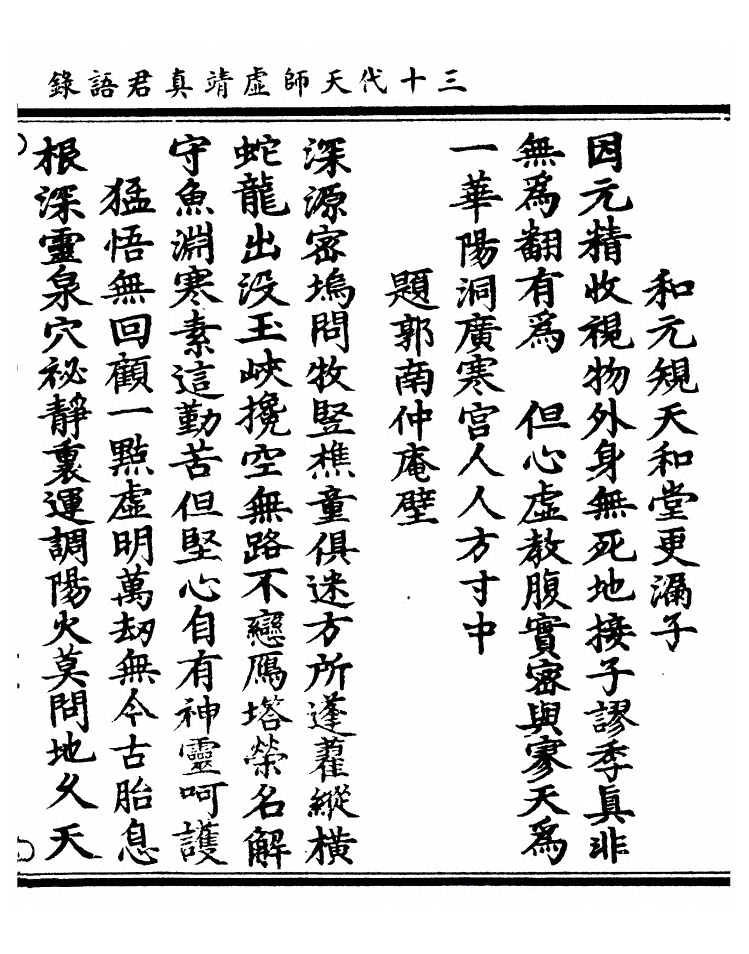 三十代天師虛靖真君語錄
和元規天和堂更漏子
因元精收視物外身無死地接子謬季真非
無為翻有為　但心虛教腹實密與寥天為
一華陽洞廣寒宮人人方寸中
題郭南仲庵壁
深源密塢問牧豎樵童俱迷方所蓬藋縱橫
蛇龍出没玉峽攙空無路不戀鴈塔榮名解
守魚淵寒素這勤苦但堅心自有神靈呵護
猛悟無回顧一點虛明萬劫無今古胎息
根深靈泉穴祕靜裏運調陽火莫問地久天